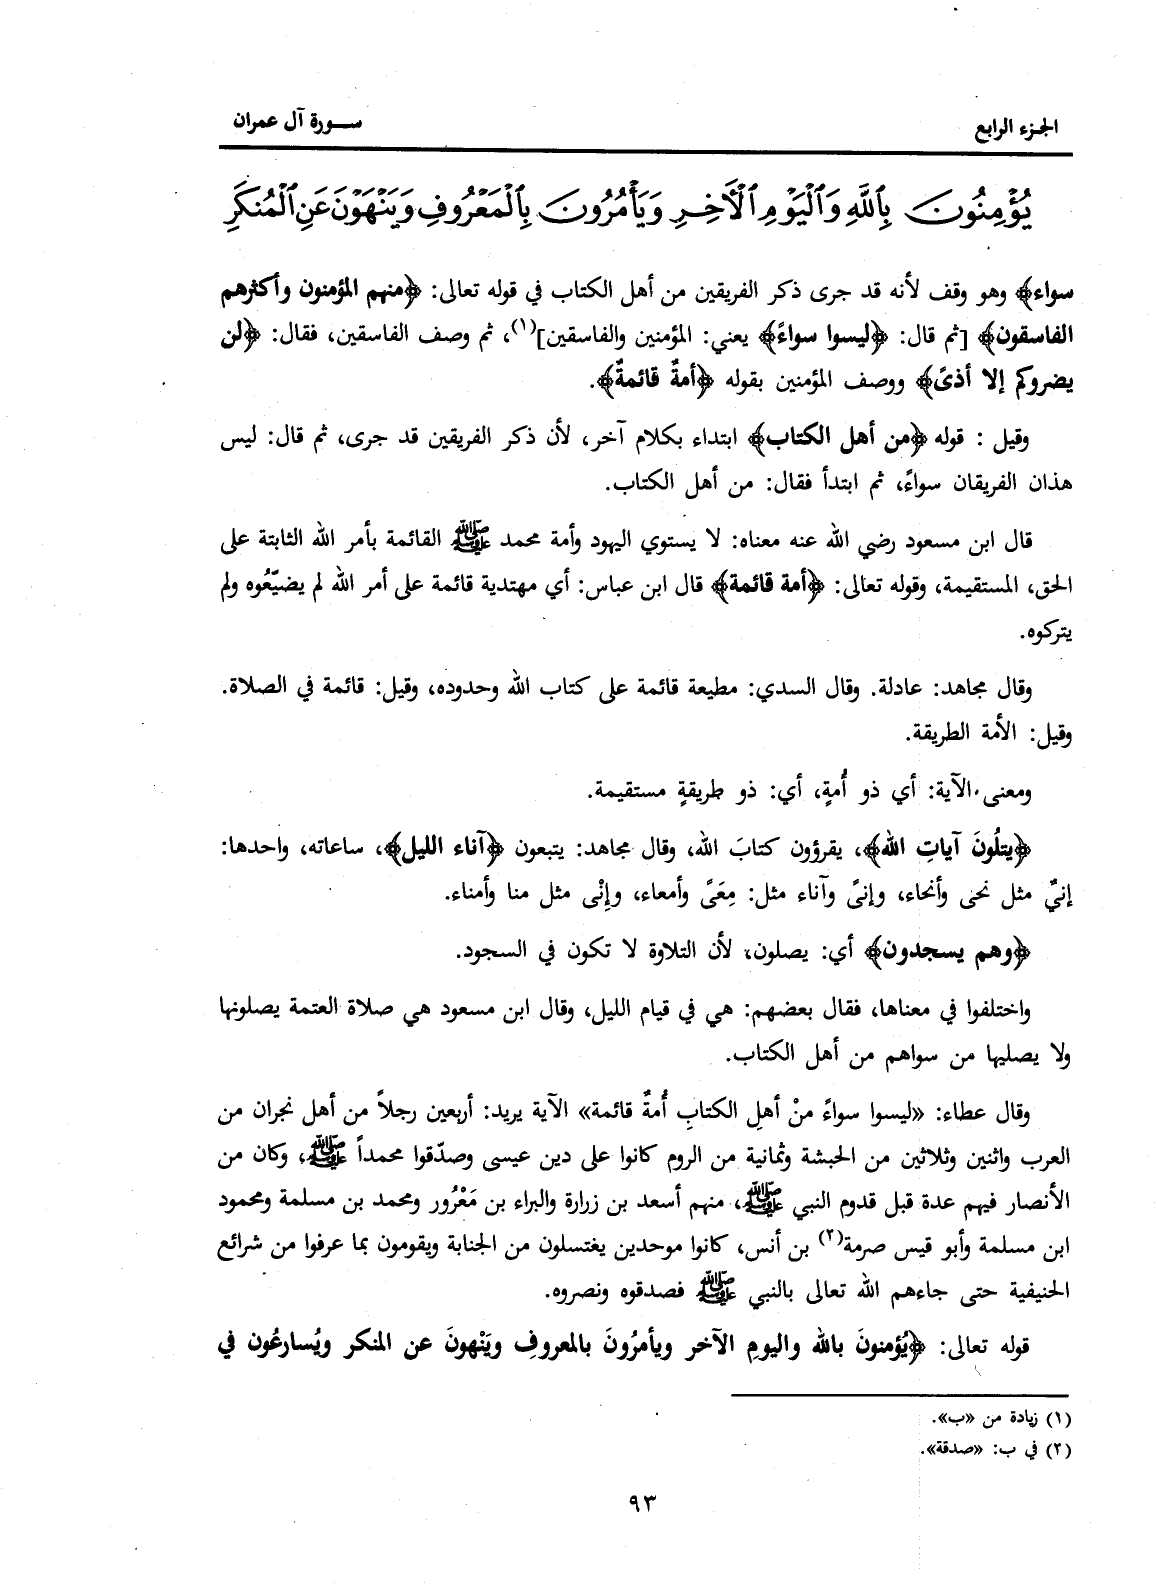 الجزء الرابع
سورة آل عمران
يُؤْمِنُونَ بِٱللَّهِ وَٱلْيَوْمِ ٱلْأَخِرِ وَيَأْمُرُونَ بِٱلْمَعْرُوفِ وَيَنْهَوْنَ عَنِ ٱلْمُنكَرِ
سواء﴾ وهو وقف لأنه قد جرى ذكر الفريقين من أهل الكتاب في قوله تعالى: ﴿منهم المؤمنون وأكثرهم
الفاسقون﴾ [ثم قال: ﴿ليسوا سواءً﴾ يعني: المؤمنين والفاسقين](١)، ثم وصف الفاسقين، فقال: ﴿لن
يضروكم إلا أذىً﴾ ووصف المؤمنين بقوله ﴿أمةٌ قائمةٌ﴾.
وقيل : قوله ﴿من أهل الكتاب﴾ ابتداء بكلام آخر، لأن ذكر الفريقين قد جرى، ثم قال: ليس
هذان الفريقان سواءً، ثم ابتدأ فقال: من أهل الكتاب.
قال ابن مسعود رضي الله عنه معناه: لا يستوي اليهود وأمة محمد ﷺ القائمة بأمر الله الثابتة على
الحق، المستقيمة، وقوله تعالى: ﴿أمة قائمة﴾ قال ابن عباس: أي مهتدية قائمة على أمر الله لم يضيّعُوه ولم
يتركوه.
وقال مجاهد: عادلة. وقال السدي: مطيعة قائمة على كتاب الله وحدوده، وقيل: قائمة في الصلاة.
وقيل: الأمة الطريقة.
ومعنى الآية: أي ذو أُمةٍ، أي: ذو طريقةٍ مستقيمة.
﴿يتلُونَ آياتِ الله﴾، يقرؤون كتابَ الله، وقال مجاهد: يتبعون ﴿آناء الليل﴾، ساعاته، واحدها:
إنيٌ مثل نحى وأنحاء، وإنىً وآناء مثل: مِعَىً وأمعاء، وإنْى مثل منا وأمناء.
﴿وهم يسجدون﴾ أي: يصلون، لأن التلاوة لا تكون في السجود.
واختلفوا في معناها، فقال بعضهم: هي في قيام الليل، وقال ابن مسعود هي صلاة العتمة يصلونها
ولا يصليها من سواهم من أهل الكتاب.
وقال عطاء: «ليسوا سواءً منْ أهلِ الكتابِ أُمةٌ قائمة» الآية يريد: أربعين رجلاً من أهل نجران من
العرب واثنين وثلاثين من الحبشة وثمانية من الروم كانوا على دين عيسى وصدّقوا محمداً ﷺ، وكان من
الأنصار فيهم عدة قبل قدوم النبي ﷺ، منهم أسعد بن زرارة والبراء بن مَعْرُور ومحمد بن مسلمة ومحمود
ابن مسلمة وأبو قيس صرمة(٢) بن أنس، كانوا موحدين يغتسلون من الجنابة ويقومون بما عرفوا من شرائع
الحنيفية حتى جاءهم الله تعالى بالنبي ﷺ فصدقوه ونصروه.
قوله تعالى: ﴿يُؤمنونَ بالله واليومِ الآخر ويأمرُونَ بالمعروفِ ويَنْهونَ عن المنكر ويُسارعُون في
(١) زيادة من «ب».
(٢) في ب: «صدقة».
٩٣